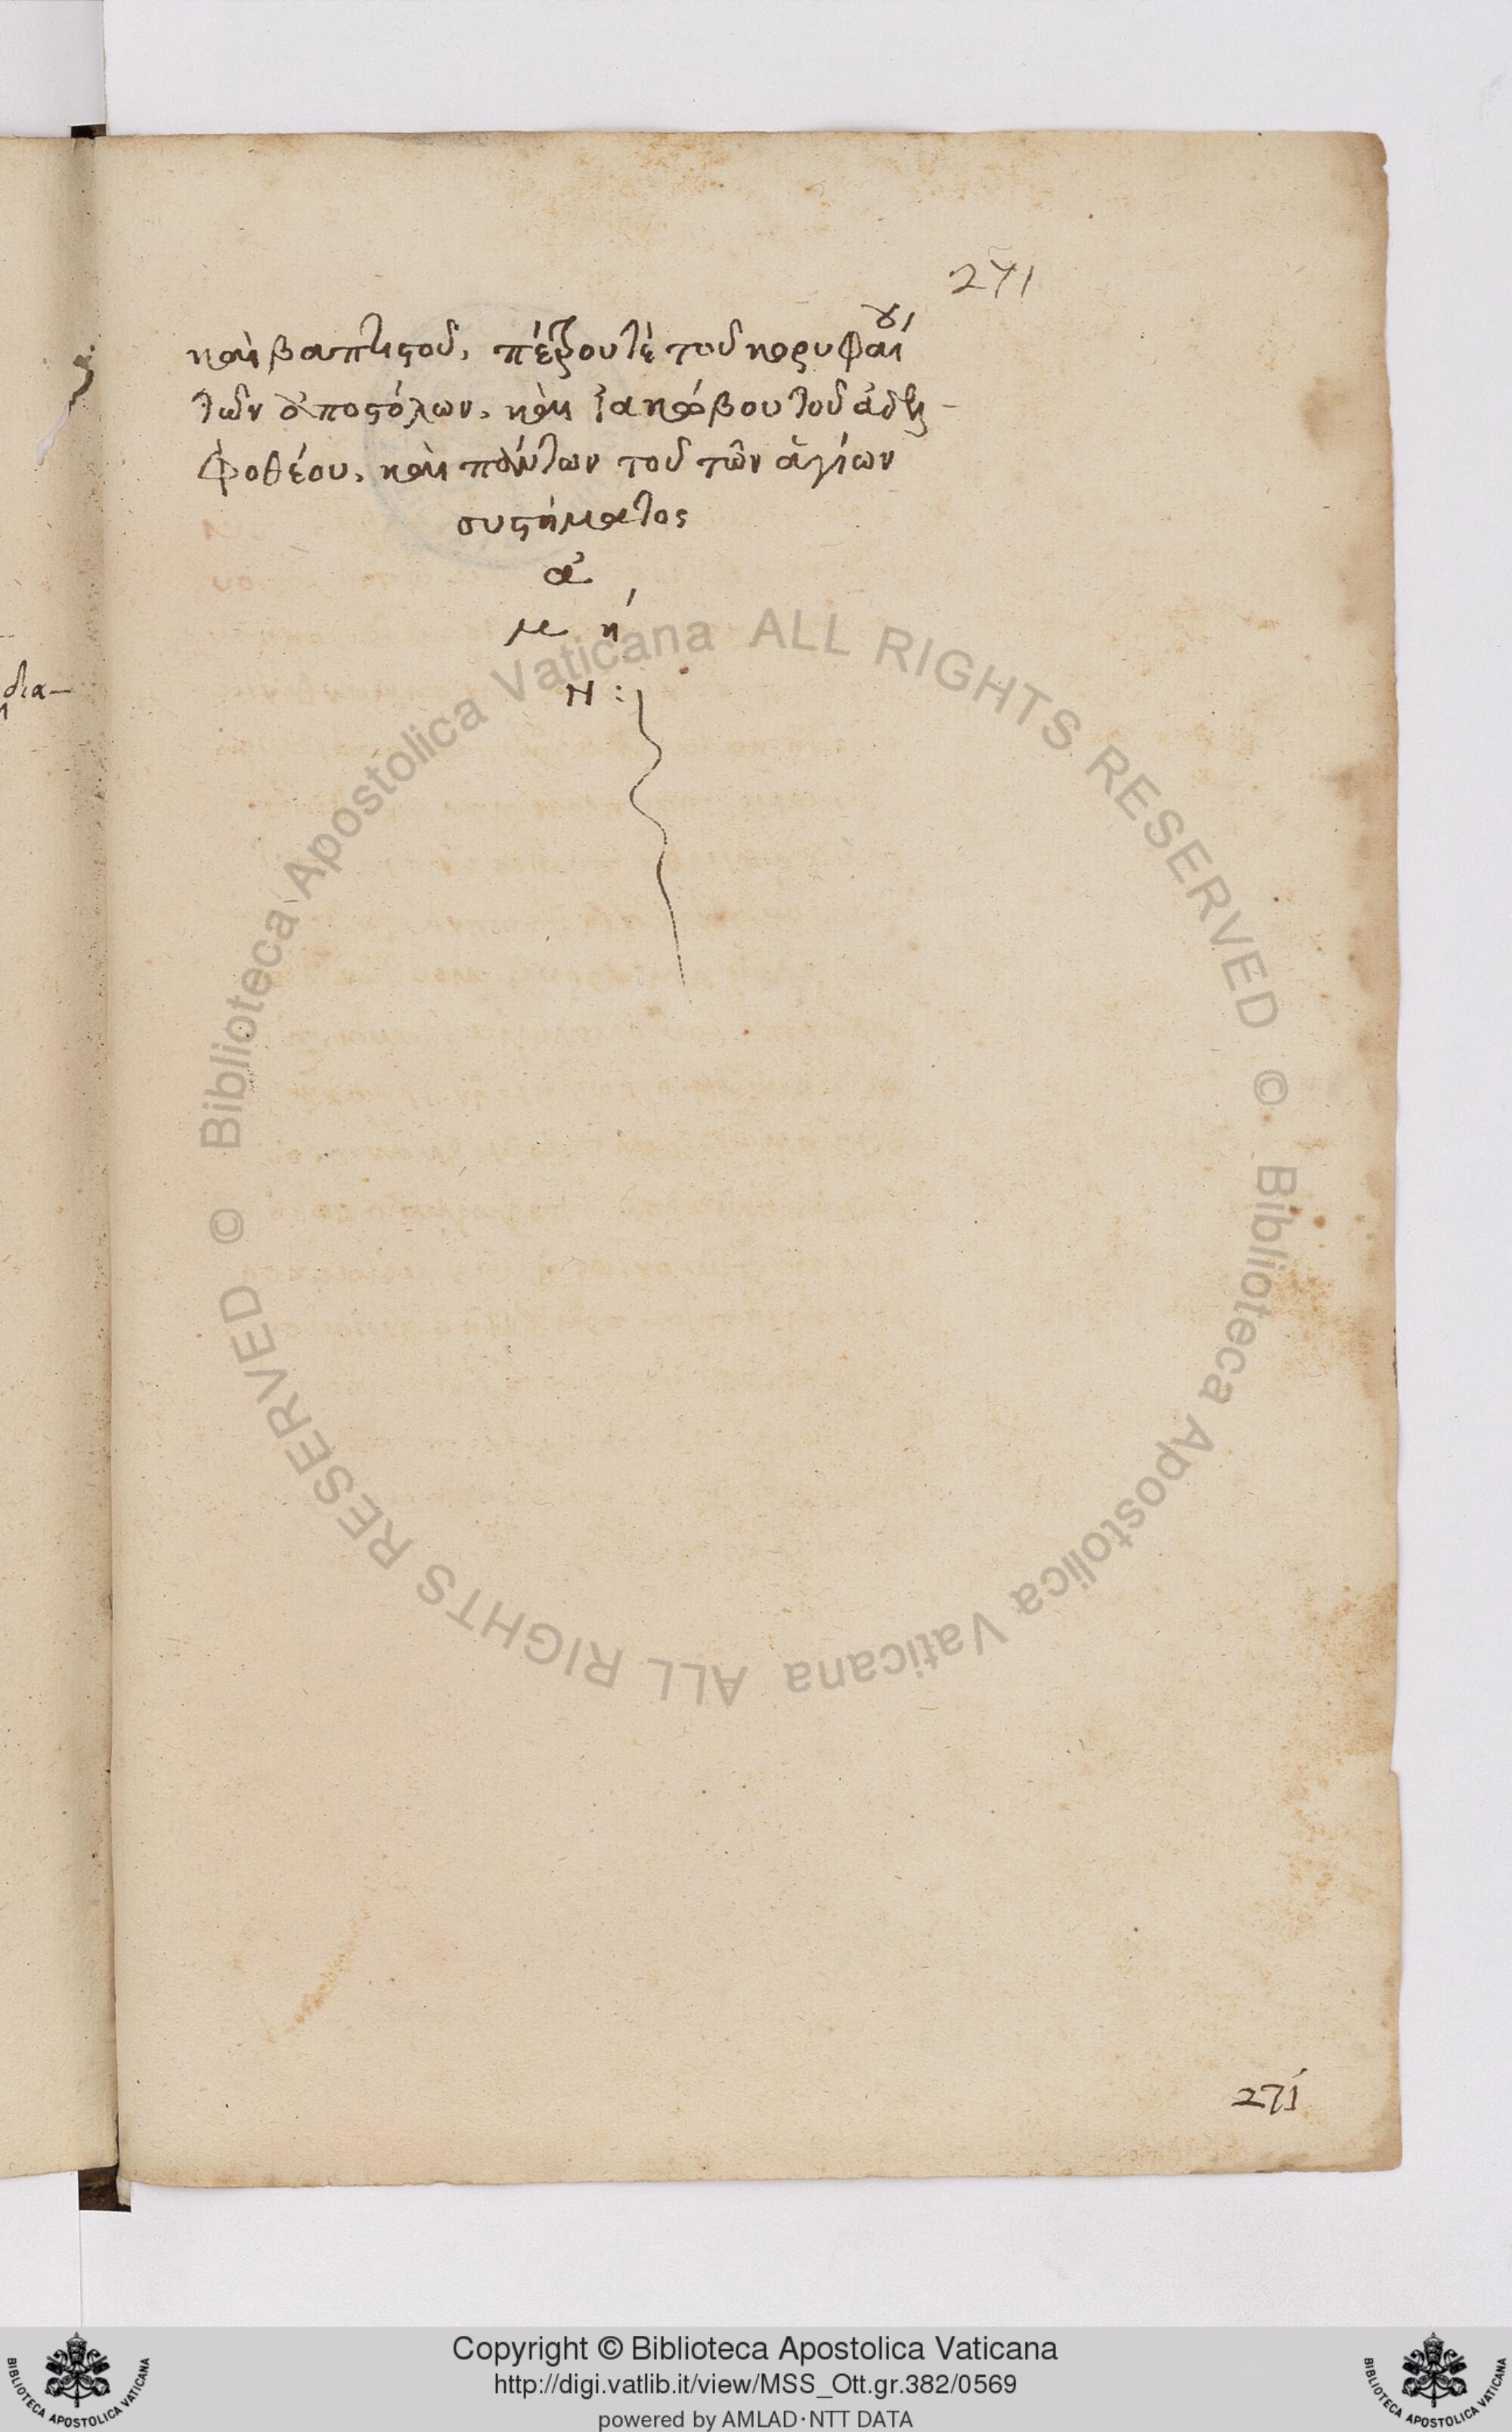 271
καὶ βαπτιστοῦ, πέτρου τὲ τοῦ κορυφαίου
τῶν ἀποστόλων, καὶ ἰακώβου τοῦ ἀδελ-
φοθέου, καὶ πάντων τοῦ τῶν ἁγίων
συστήματος
ἀ
μ ή
ν :
δια-
271
Biblioteca Apostolica Vaticana ALL RIGHTS RESERVED © Biblioteca Apostolica Vaticana ALL RIGHTS RESERVED ©
Copyright © Biblioteca Apostolica Vaticana
http://digi.vatlib.it/view/MSS_Ott.gr.382/0569
powered by AMLAD·NTT DATA
BIBLIOTECA APOSTOLICA VATICANA
BIBLIOTECA APOSTOLICA VATICANA